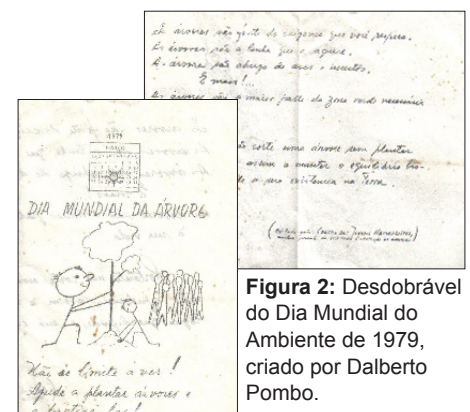 As árvores são fonte de oxigénio que você respira.
As árvores são a lenha que o aquece.
As árvores são abrigo de aves e insectos.
E mais!...
As árvores são a maior parte da zona verde necessária
corte uma árvore sem plantar
assim a manter o equilíbrio
a sua existência na Terra.
1979
MARÇO
DIA MUNDIAL DA ÁRVORE
Não se limite a ver!
Ajude a plantar árvores e
a protegê-las!
Figura 2: Desdobrável
do Dia Mundial do
Ambiente de 1979,
criado por Dalberto
Pombo.